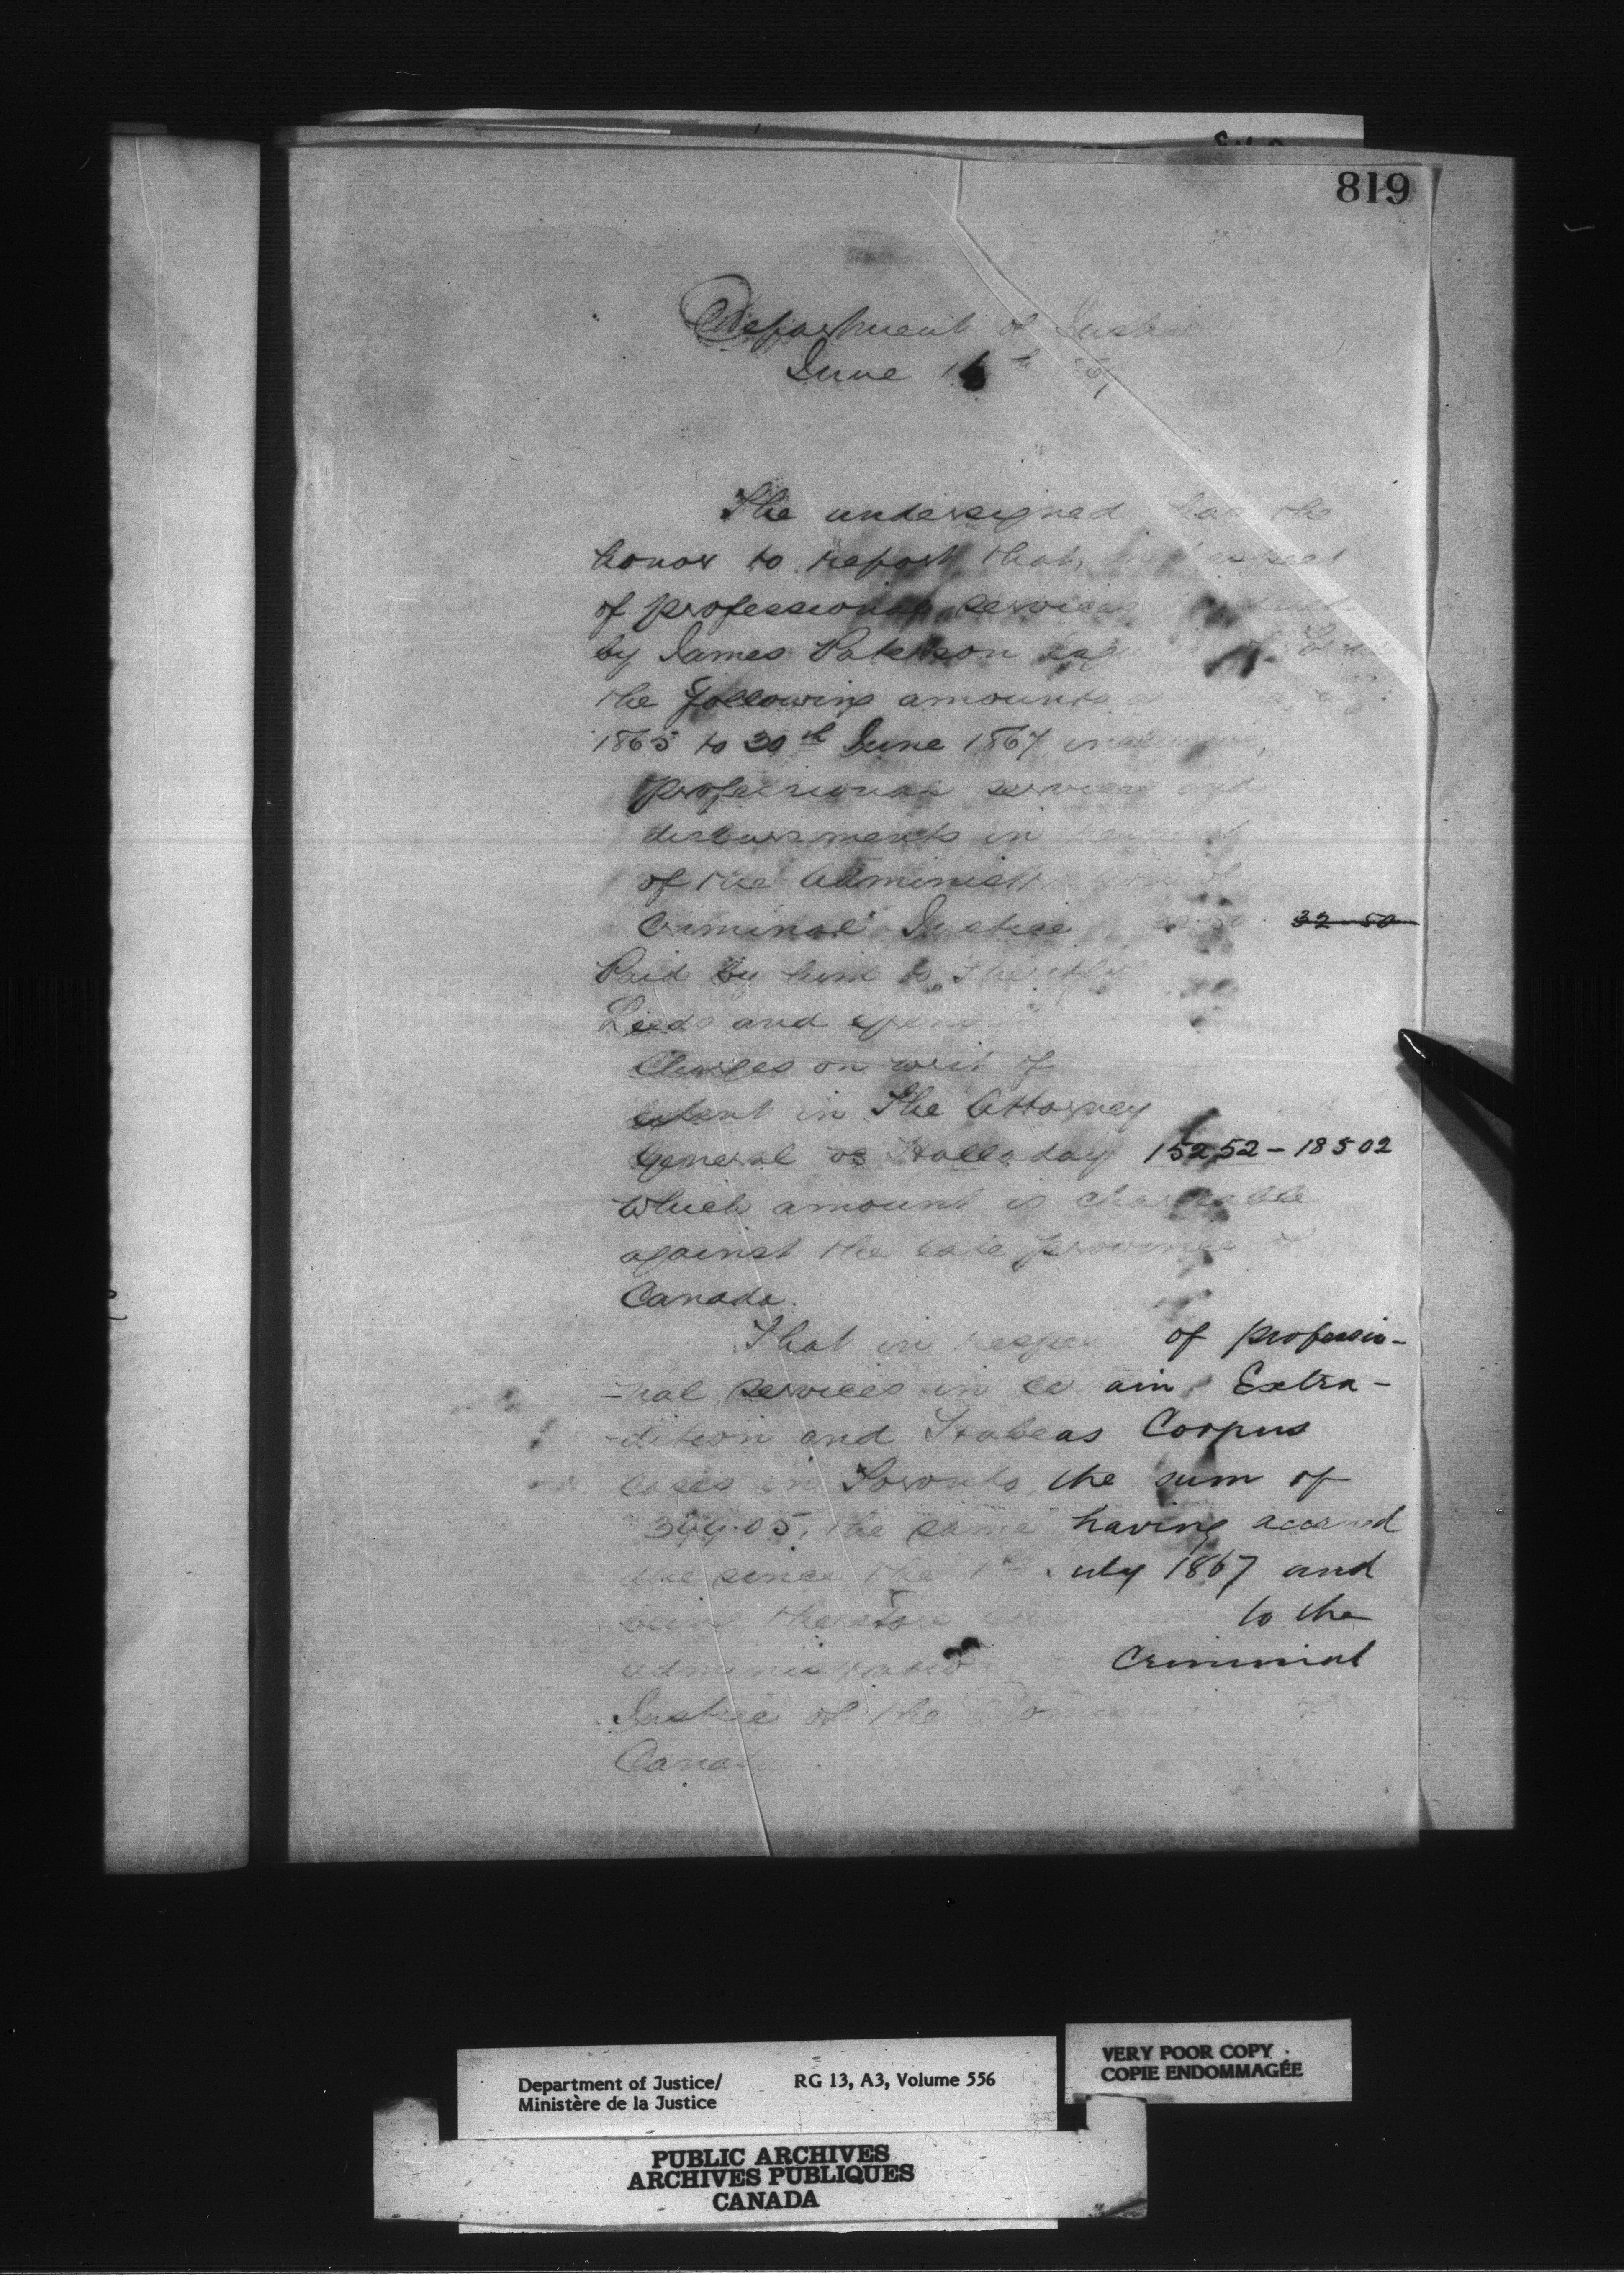 819
Department of Justice
June 16th
The undersigned has the
honor to report that, in respect
of professional services
by James Paterson
the following amounts
1865 to 30th June 1867, inclusive,
professional services and
disbursments in
of the Administration of
Criminal Justice 32-50 32-50
Paid by him to Sheriff
Leeds and
Charges on writ of
extent in The Attorney
General vs Halladay 152 52 - 185 02
which amount is chargeable
against the late province of
Canada.
That in respect of professio-
-nal services in certain Extra-
-dition and Habeas Corpus
cases in Toronto, the sum of
the same having accrued
due since the 1st July 1867 and
being therefore to the
administration Criminal
Justice of the of
Canada.
Department of Justice/
Ministère de la Justice
RG 13, A3, Volume 556
VERY POOR COPY
COPIE ENDOMMAGÉE
PUBLIC ARCHIVES
ARCHIVES PUBLIQUES
CANADA